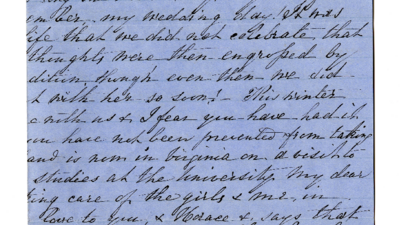 ember, my wedding day. It was
life that we did not celebrate that
thoughts were then engrossed by
though even then we did
t with her so soon! This winter
e with us & I fear you have had it
you have not been prevented from taking
and is now in Virginia on a visit to
studies at the University. My dear
king care of the girls & me, in
love to you, & Horace & says that